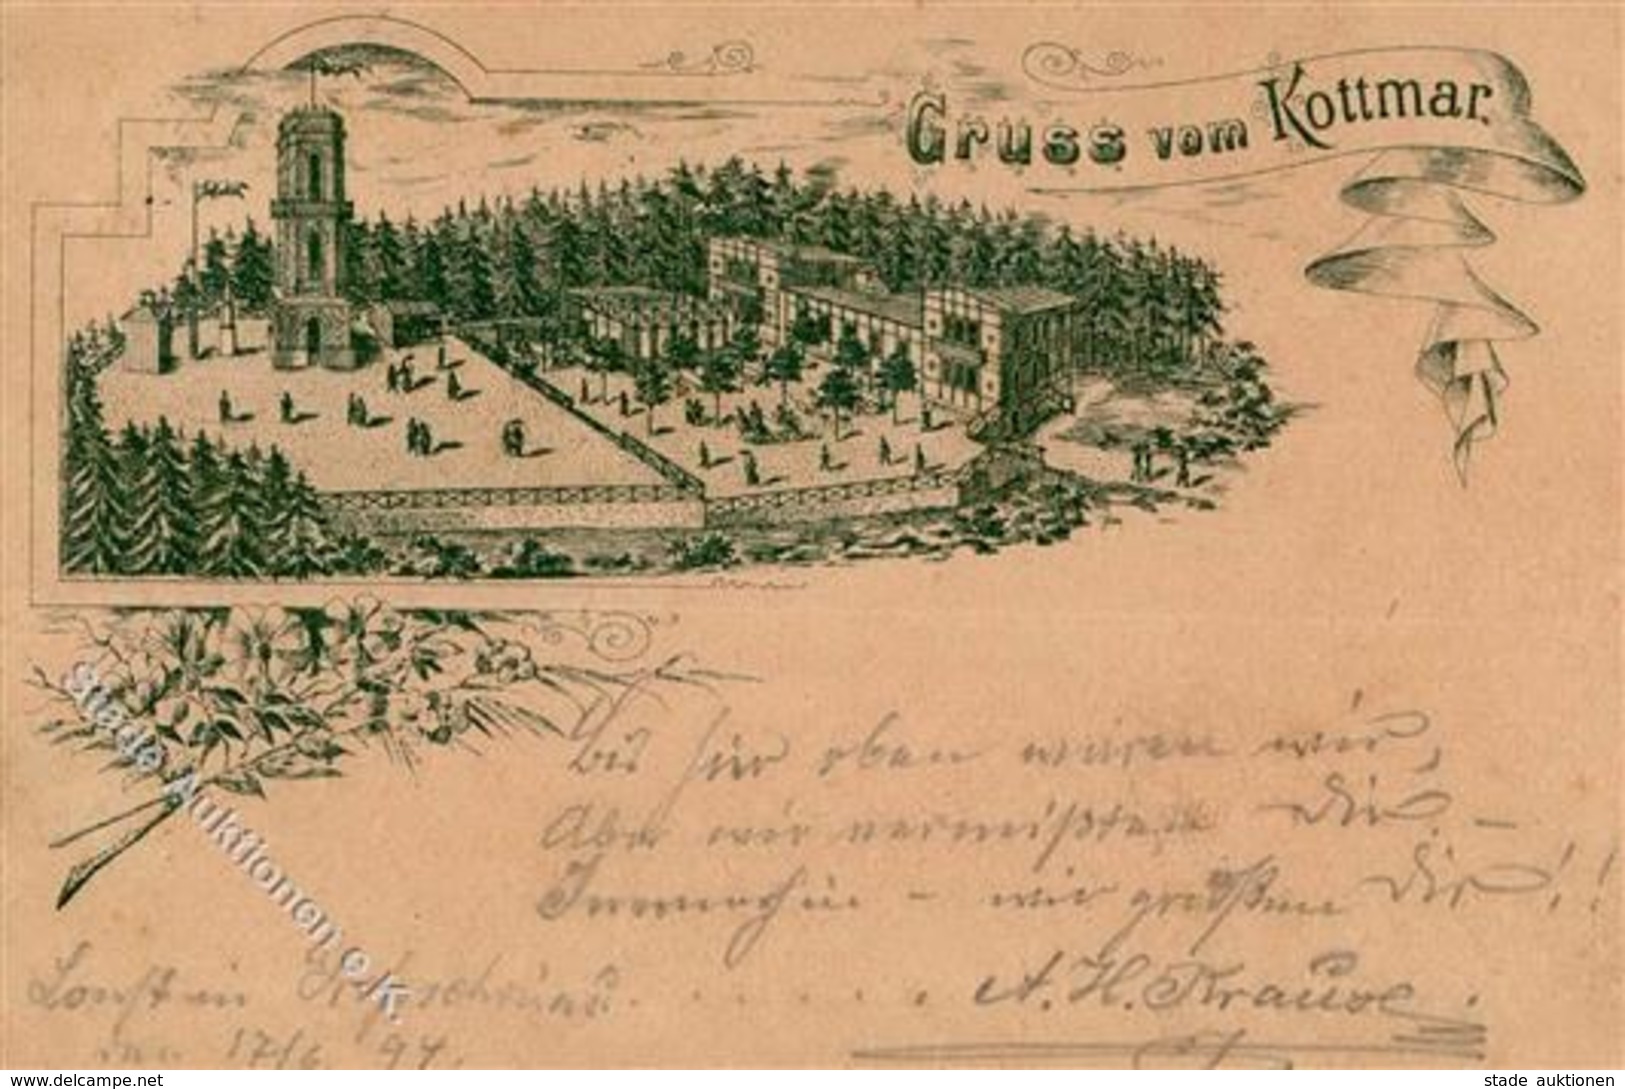 Gruss vom Kottmar.
Bis hier oben waren wir,
Aber wir vermißten Dir. –
Immerhin – wir grüßen Dir!!
A. H. Krause.
17/6. 94.
stade Auktionen e.K.
www.delcampe.net
stade auktionen